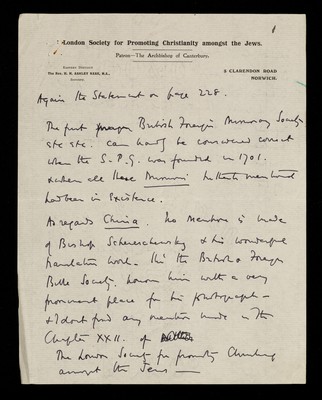 London Society for Promoting Christianity amongst the Jews.
Patron—The Archbishop of Canterbury.
5 CLARENDON ROAD
NORWICH.
Again the Statement on page 228.
The first foreign British Foreign Missionary Society
etc etc. can hardly be considered correct
when the S.P.G. was founded in 1701.
& when all these
had been in Existence.
As regards China, no mention is made
of Bishop Schereschewsky & his wonderful
translation work. tho' the British & Foreign
Bible Society honour him with a very
prominent place for his photograph –
& I dont find any mention made in the
Chapter XXII. of
The London Society for promoting Christianity
amongst the Jews —